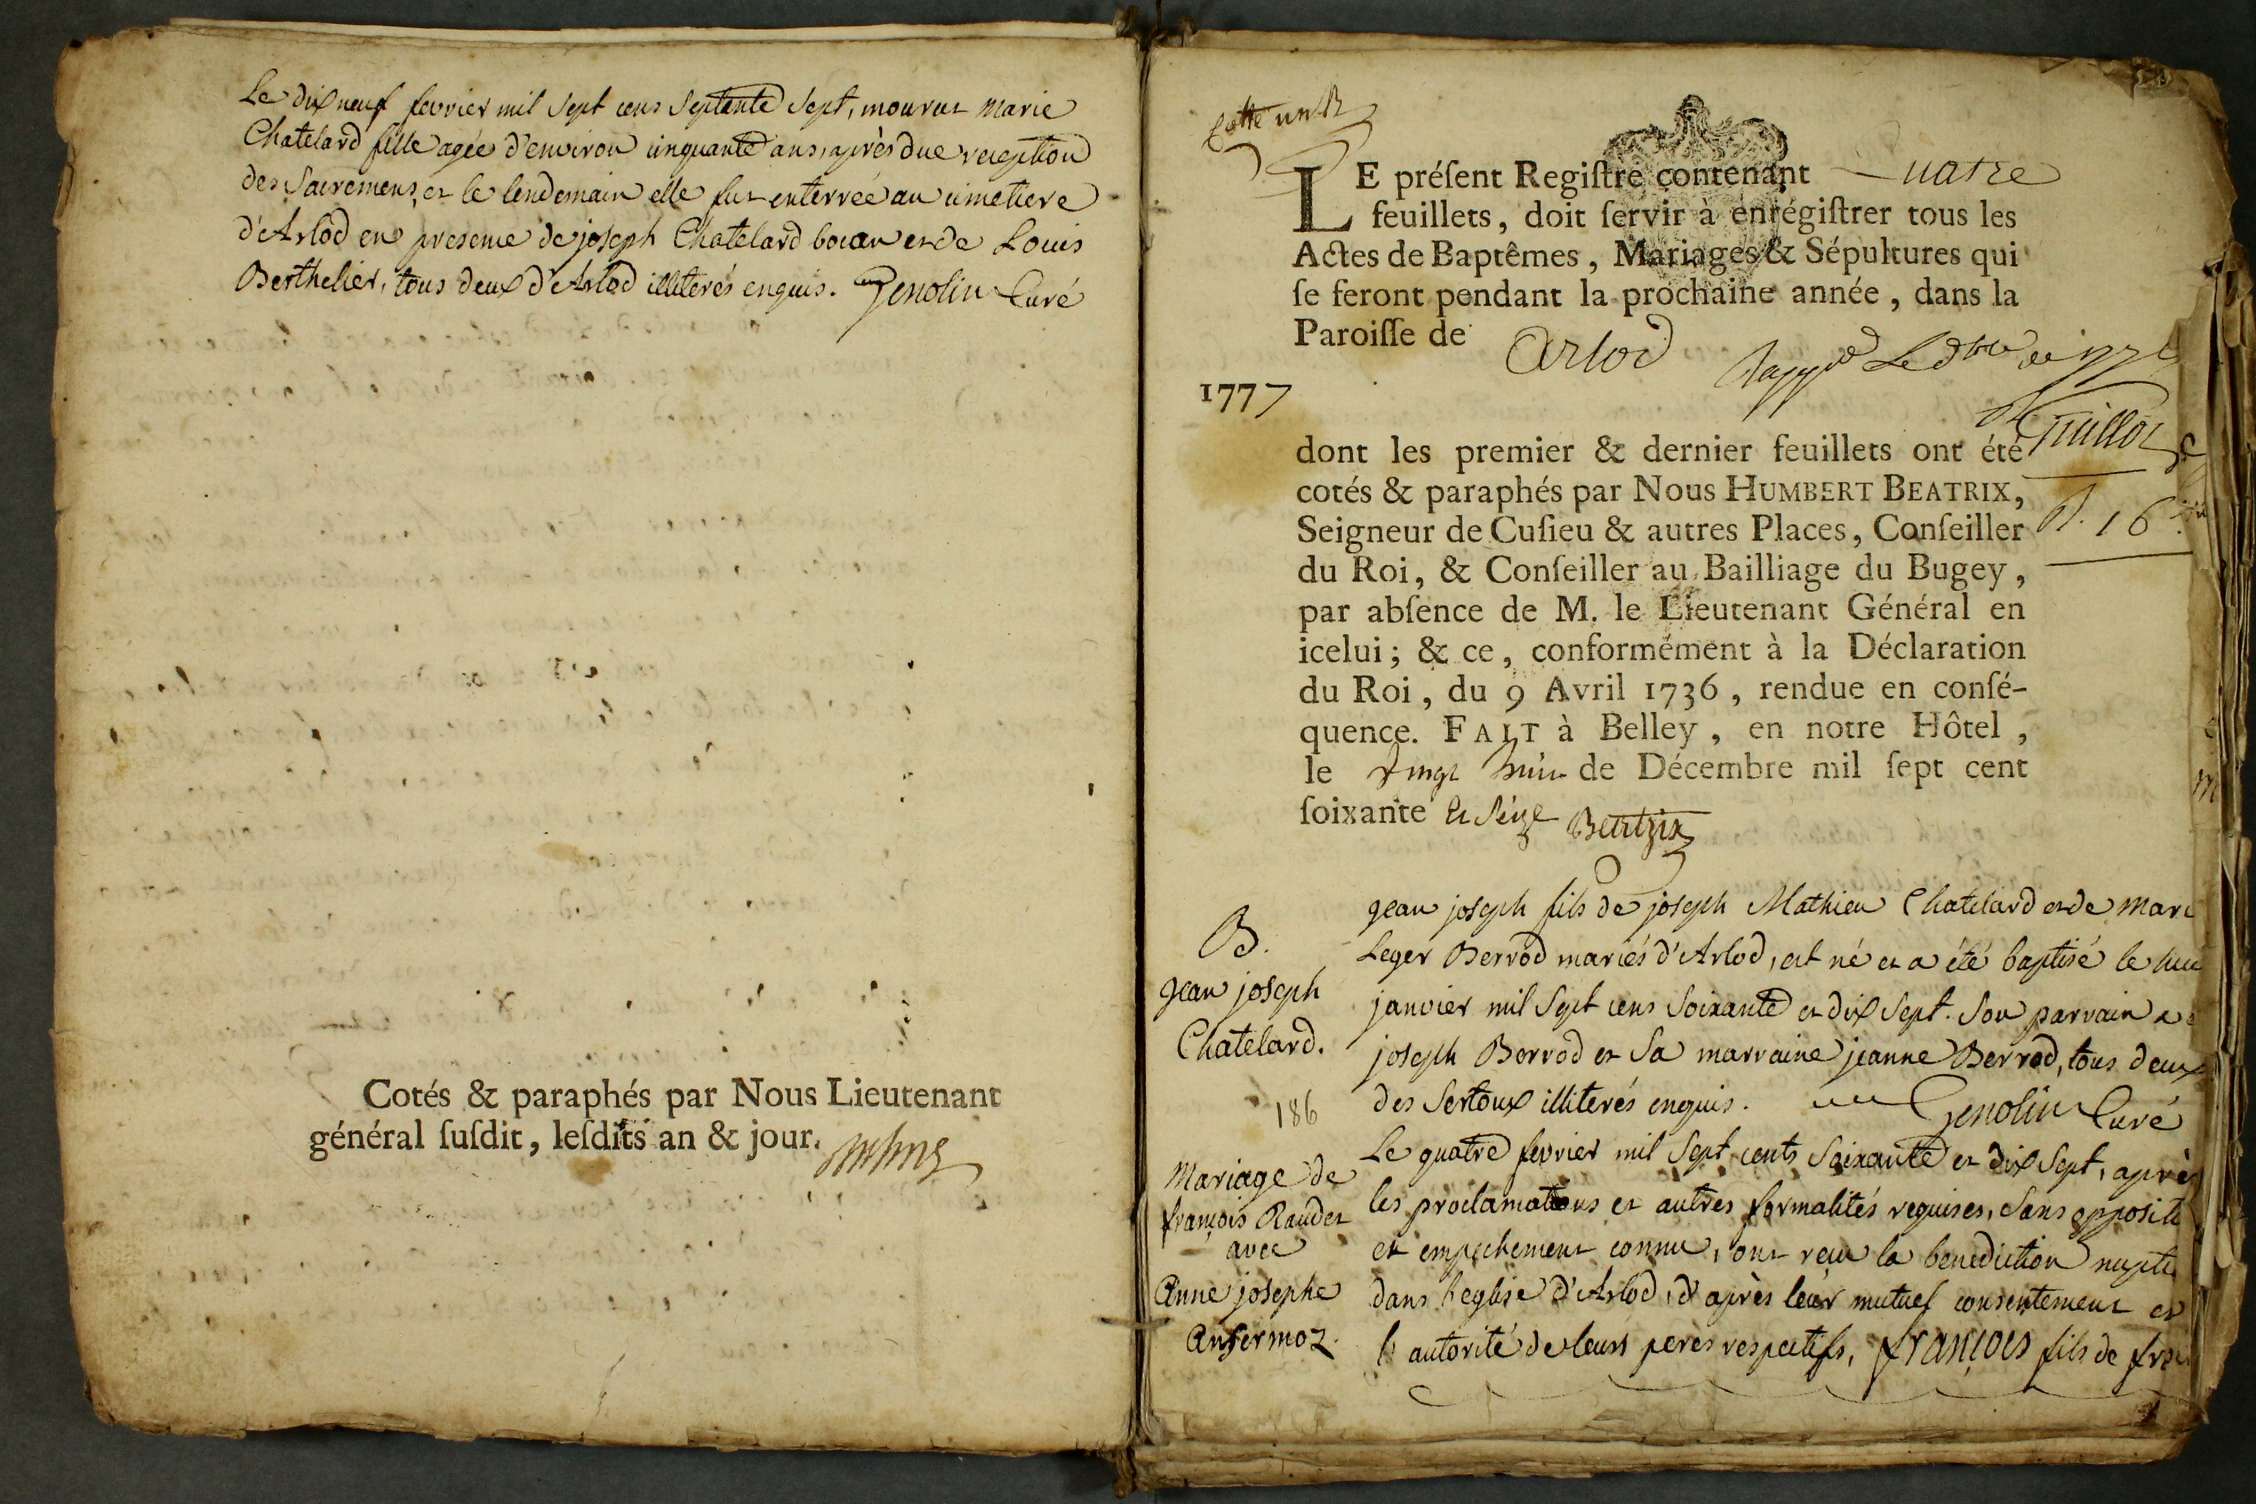 Le dix neuf fevrier mil sept cens septante sept, mourut Marie
Chatelard fille agée d'environ cinquante ans, après due reception
des Sacremens, et le lendemain elle fut enterrée au cimetiere
d'Arlod en presence de joseph Chatelard bovar et de Louis
Berthelier, tous deux d'Arlod illiterés enquis. Genolin Curé
Cotés & paraphés par Nous Lieutenant
général ſuſdit, leſdits an & jour.
Cotte un
LE préſent Regiſtre contenant quatre
feuillets, doit ſervir à enrégiſtrer tous les
Actes de Baptêmes, Mariages & Sépultures qui
ſe feront pendant la prochaine année, dans la
Paroiſſe de Arlod
1777
Guillot
16
dont les premier & dernier feuillets ont été
cotés & paraphés par Nous HUMBERT BEATRIX,
Seigneur de Cuſieu & autres Places, Conſeiller
du Roi, & Conſeiller au Bailliage du Bugey,
par abſence de M. le Lieutenant Général en
icelui; & ce, conformément à la Déclaration
du Roi, du 9 Avril 1736, rendue en conſé-
quence. FAIT à Belley, en notre Hôtel,
le vingt huit de Décembre mil ſept cent
ſoixante et seize Beatrix
B.
jean joseph
Chatelard.
186
jean joseph fils de joseph Mathieu Chatelard et de Mari
Leger Berrod mariés d'Arlod, est né et a été baptisé le
janvier mil sept cens soixante et dix sept. Son parrain a
joseph Berrod et Sa marraine jeanne Berrod, tous deux
des Sertoux illiterés enquis. Genolin Curé
Mariage de
françois Raudet
avec
Anne josephe
Ansermoz.
Le quatre fevrier mil sept cents soixante et dix sept, après
les proclamations et autres formalités requises, sans oppositi
et empechement connu, ont reçu la benediction nupti
dans l'eglise d'Arlod, d'après leur mutuel consentement et
l'autorité de leurs peres respectifs, françois fils de fra